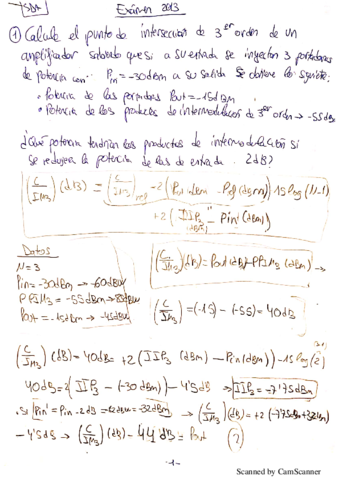 SDR
Exámen 2013
① Calcule el punto de intersección de 3er orden de un
amplificador sabiendo que si a su entrada se inyectan 3 portadoras
de potencia con Pin = -30dBm a su salida se obtiene lo siguiente:
• Potencia de las portadoras Pout = -15dBm
• Potencia de los productos de intermodulación de 3er orden → -55dBm
¿Qué potencia tendrían los productos de intermodulación si
se redujera la potencia de las de entrada 2dB?
(C/IM3)(dB) = (C/IM3)ref -2(Pout dBm - Pref(dBm)) 15log(N-1)
+2(IIP3(dBm) - Pin'(dBm))
Datos
N=3
Pin = -30dBm → -60dBW
PPIM3 = -55dBm → -85dBW
Pout = -15dBm → -45dBW
(C/IM3)(dB) = Pout(dB) - PPIM3(dBm) →
(C/IM3) = (-15) - (-55) = 40dB
(C/IM3)(dB) = 40dB = +2(IIP3(dBm) - Pin(dBm)) - 15log(2)
40dB = 2(IIP3 - (-30dBm)) - 4'5dB → IIP3 = -7'75dBm
• Si Pin' = Pin - 2dB = -32dBm → (C/IM3)(dB) = +2(-7'75dBm + 32dBm)
- 4'5dB → (C/IM3)(dB) = 44dB = Pout (?)
-1-
Scanned by CamScanner